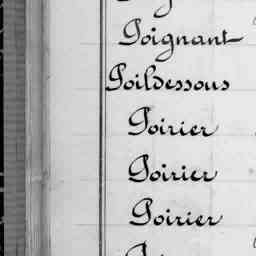 Poignant
Poildessous
Poirier
Poirier
Poirier